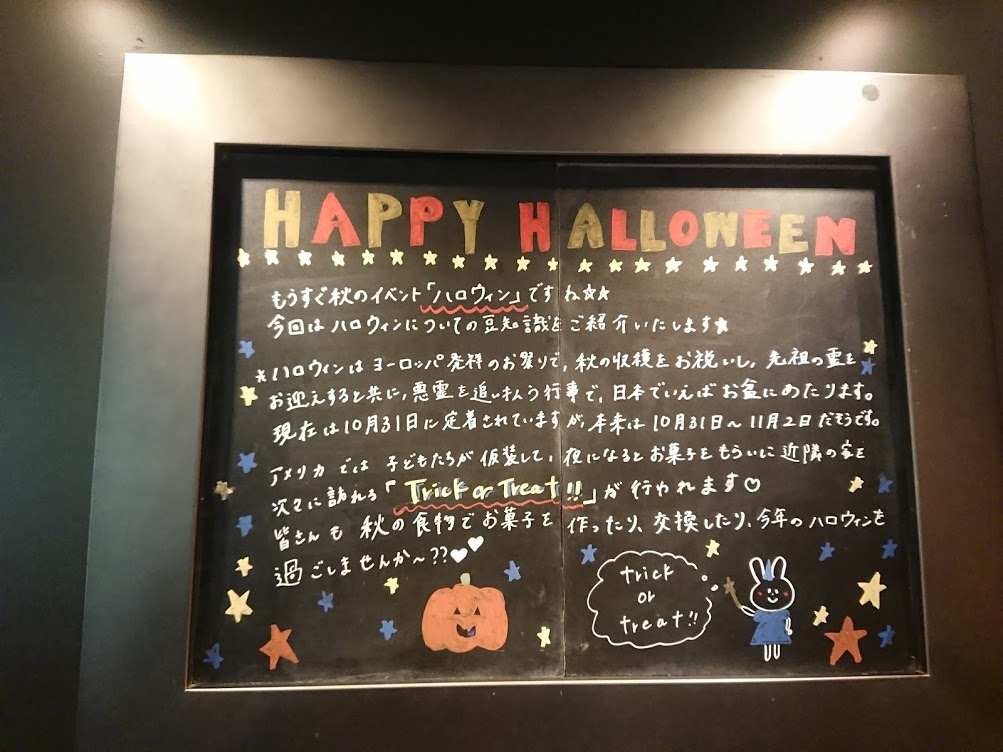 HAPPY HALLOWEEN
もうすぐ秋のイベント「ハロウィン」ですね☆★
今回はハロウィンについての豆知識をご紹介いたします★
★ハロウィンはヨーロッパ発祥のお祭りで、秋の収穫をお祝いし、先祖の霊を
お迎えすると共に、悪霊を追い払う行事で、日本でいえばお盆にあたります。
現在は10月31日に定着されていますが、本来は10月31日～11月2日だそうです。
アメリカでは子どもたちが仮装して、夜になるとお菓子をもらいに近隣の家を
次々に訪れる「Trick or Treat!!」が行われます♡
皆さんも秋の食物でお菓子を作ったり、交換したり、今年のハロウィンを
過ごしませんか～??♥♥
trick
or
treat!!